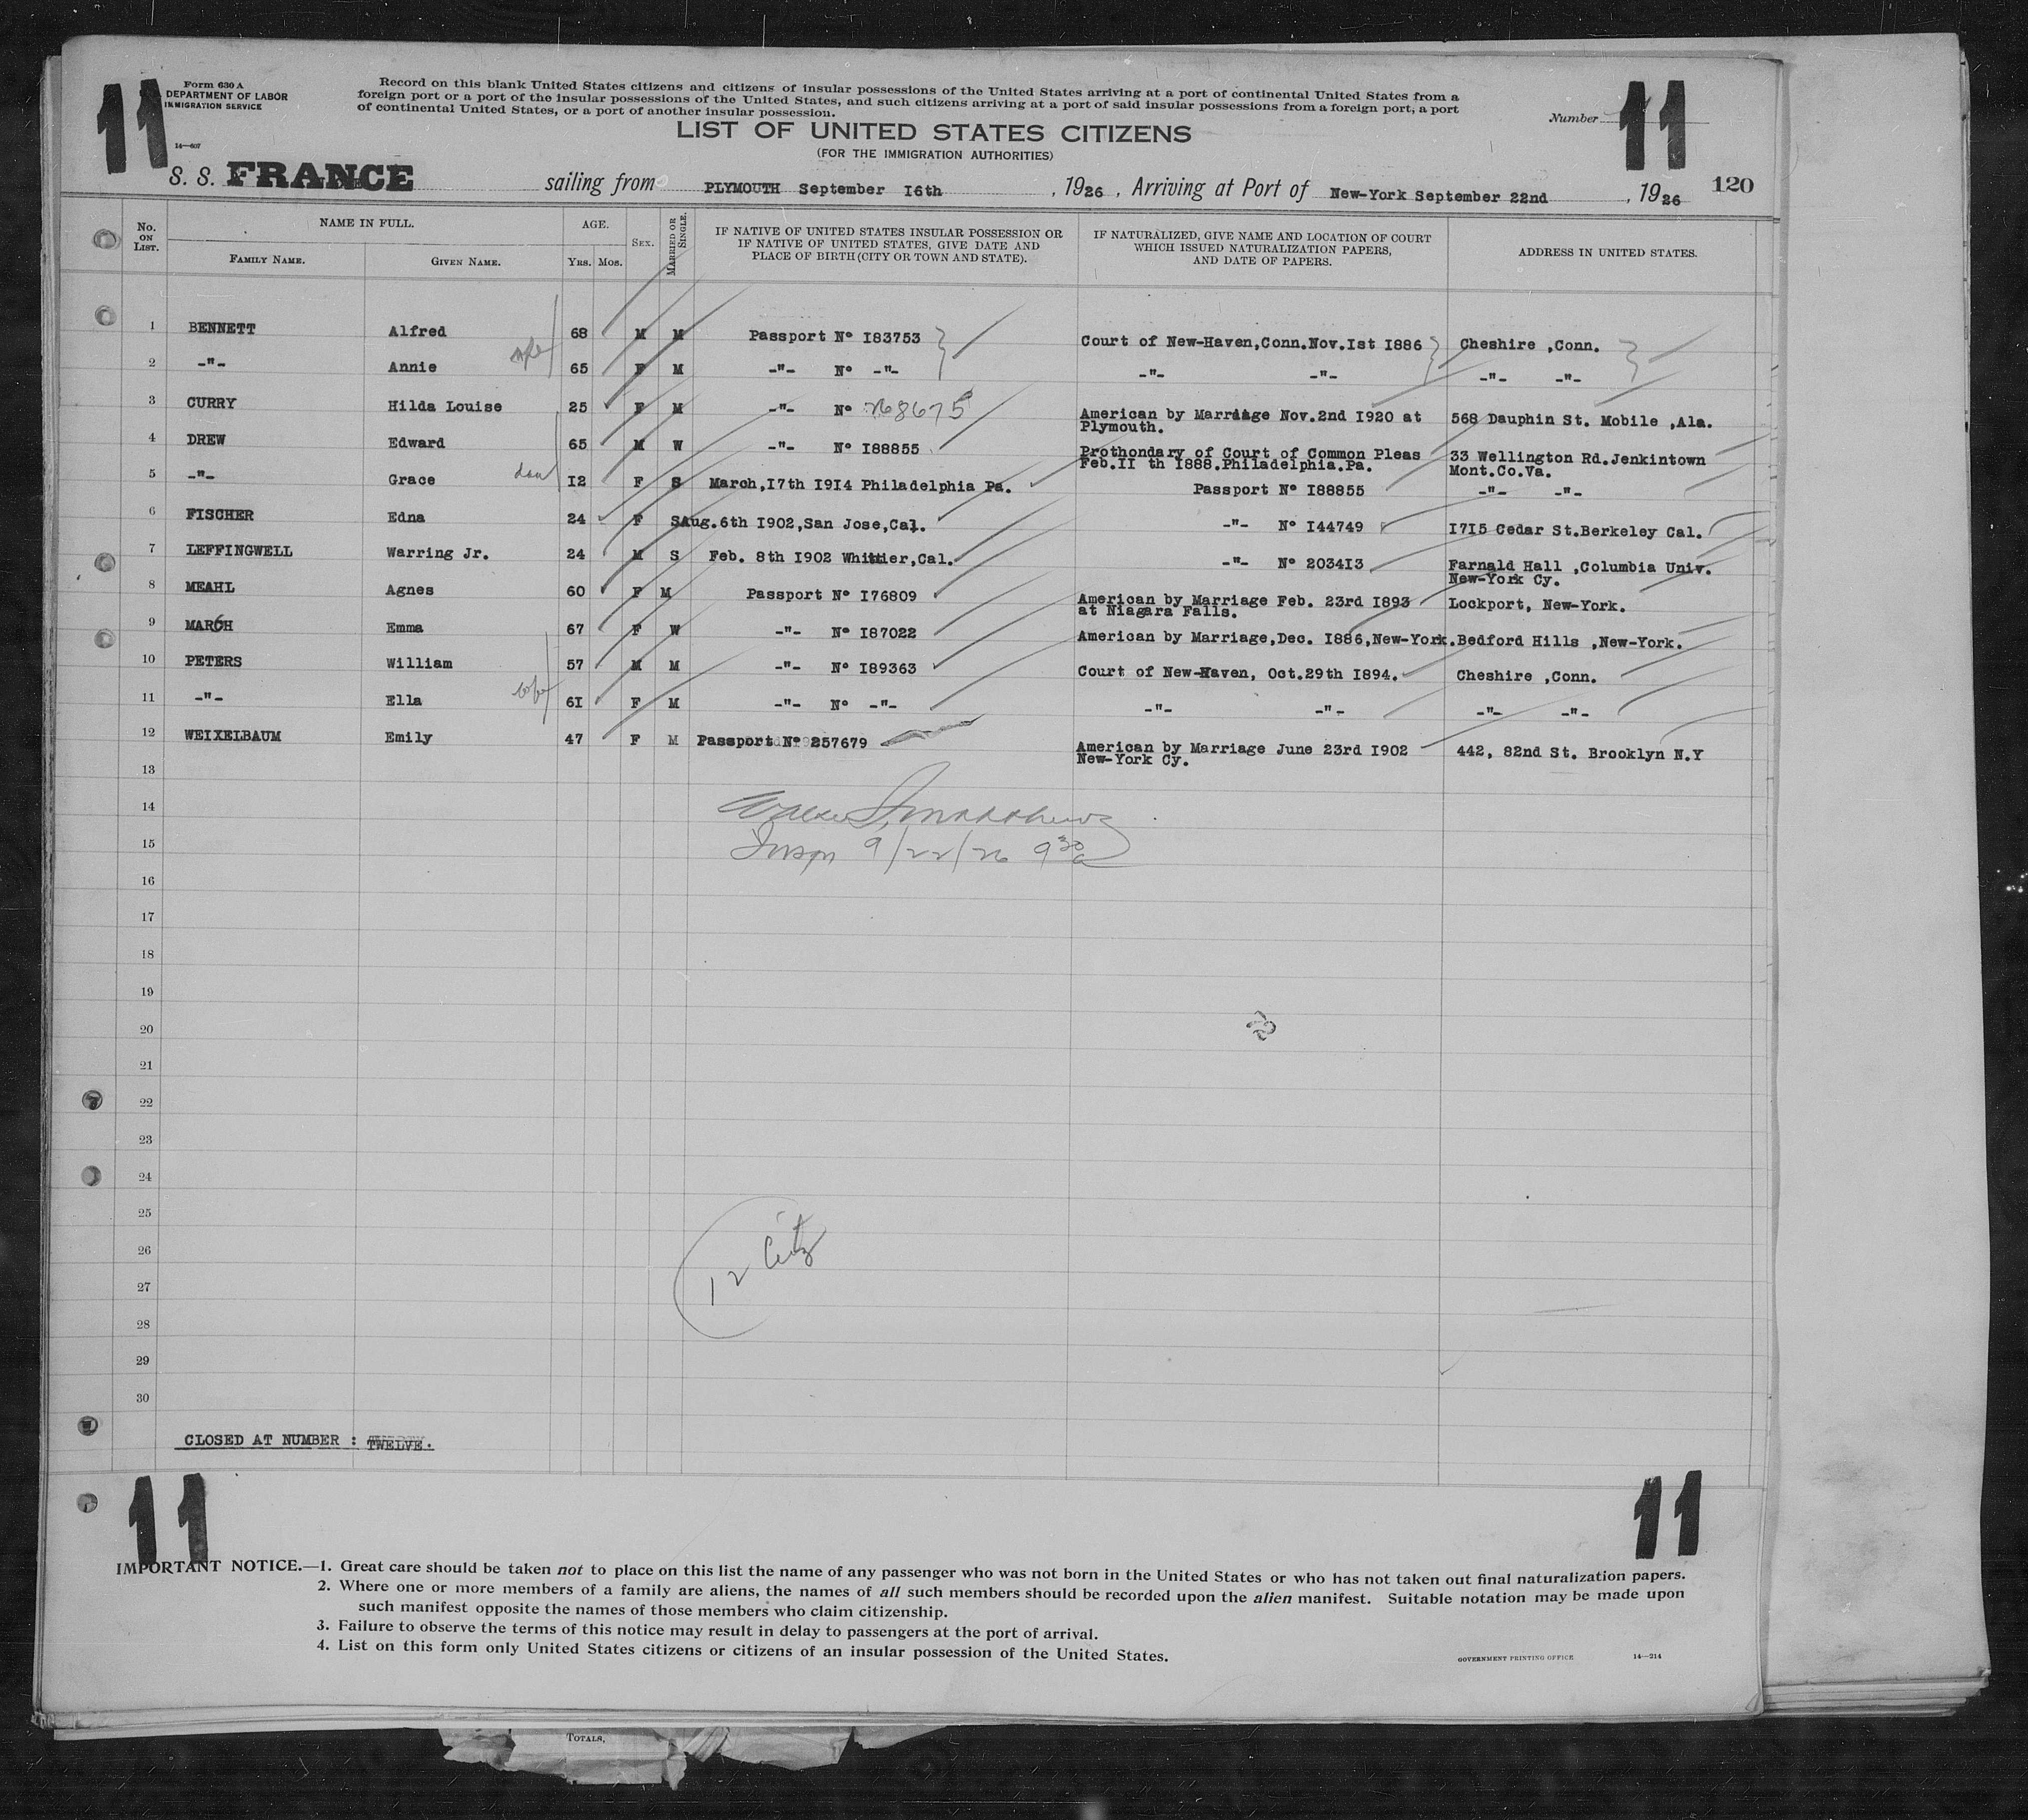 11
Form 630 A
DEPARTMENT OF LABOR
IMMIGRATION SERVICE
14—607
Record on this blank United States citizens and citizens of insular possessions of the United States arriving at a port of continental United States from a
foreign port or a port of the insular possessions of the United States, and such citizens arriving at a port of said insular possessions from a foreign port, a port
of continental United States, or a port of another insular possession.
LIST OF UNITED STATES CITIZENS
(FOR THE IMMIGRATION AUTHORITIES)
Number 11
S. S. FRANCE sailing from PLYMOUTH September I6th , 1926 , Arriving at Port of New-York September 22nd , 1926 120
No. ON LIST. NAME IN FULL. FAMILY NAME. GIVEN NAME. AGE. YRS. MOS. SEX. MARRIED OR SINGLE. IF NATIVE OF UNITED STATES INSULAR POSSESSION OR IF NATIVE OF UNITED STATES, GIVE DATE AND PLACE OF BIRTH (CITY OR TOWN AND STATE). IF NATURALIZED, GIVE NAME AND LOCATION OF COURT WHICH ISSUED NATURALIZATION PAPERS, AND DATE OF PAPERS. ADDRESS IN UNITED STATES.
1 BENNETT Alfred 68 M M Passport N° I83753 Court of New-Haven,Conn.Nov.Ist I886 Cheshire ,Conn.
2 -"- Annie wife 65 F M -"- N° -"- -"- -"- -"- -"-
3 CURRY Hilda Louise 25 F M -"- N° American by Marriage Nov.2nd I920 at Plymouth. 568 Dauphin St. Mobile ,Ala.
4 DREW Edward 65 M W -"- N° I88855 Prothondary of Court of Common Pleas Feb.II th I888.Philadelphia.Pa. 33 Wellington Rd.Jenkintown Mont.Co.Va.
5 -"- Grace dau I2 F S March,I7th I9I4 Philadelphia Pa. Passport N° I88855 -"- -"-
6 FISCHER Edna 24 F S Aug.6th I902,San Jose,Cal. -"- N° I44749 I7I5 Cedar St.Berkeley Cal.
7 LEFFINGWELL Warring Jr. 24 M S Feb. 8th I902 Whittier,Cal. -"- N° 2034I3 Farnald Hall ,Columbia Univ. New-York Cy.
8 MEAHL Agnes 60 F M Passport N° I76809 American by Marriage Feb. 23rd I893 at Niagara Falls. Lockport, New-York.
9 MARCH Emma 67 F W -"- N° I87022 American by Marriage,Dec. I886,New-York. Bedford Hills ,New-York.
10 PETERS William 57 M M -"- N° I89363 Court of New-Haven, Oct.29th I894. Cheshire ,Conn.
11 -"- Ella wife 6I F M -"- N° -"- -"- -"- -"- -"-
12 WEIXELBAUM Emily 47 F M Passport N° 257679 American by Marriage June 23rd I902 New-York Cy. 442, 82nd St. Brooklyn N.Y
13
14
15 Insp 9/22/26 9 30 a
16
17
18
19
20
21
22
23
24
25
26
12 Citz
27
28
29
30
CLOSED AT NUMBER : TWELVE.
11 11
IMPORTANT NOTICE.—1. Great care should be taken not to place on this list the name of any passenger who was not born in the United States or who has not taken out final naturalization papers.
2. Where one or more members of a family are aliens, the names of all such members should be recorded upon the alien manifest. Suitable notation may be made upon
such manifest opposite the names of those members who claim citizenship.
3. Failure to observe the terms of this notice may result in delay to passengers at the port of arrival.
4. List on this form only United States citizens or citizens of an insular possession of the United States.
GOVERNMENT PRINTING OFFICE 14—214
TOTALS,